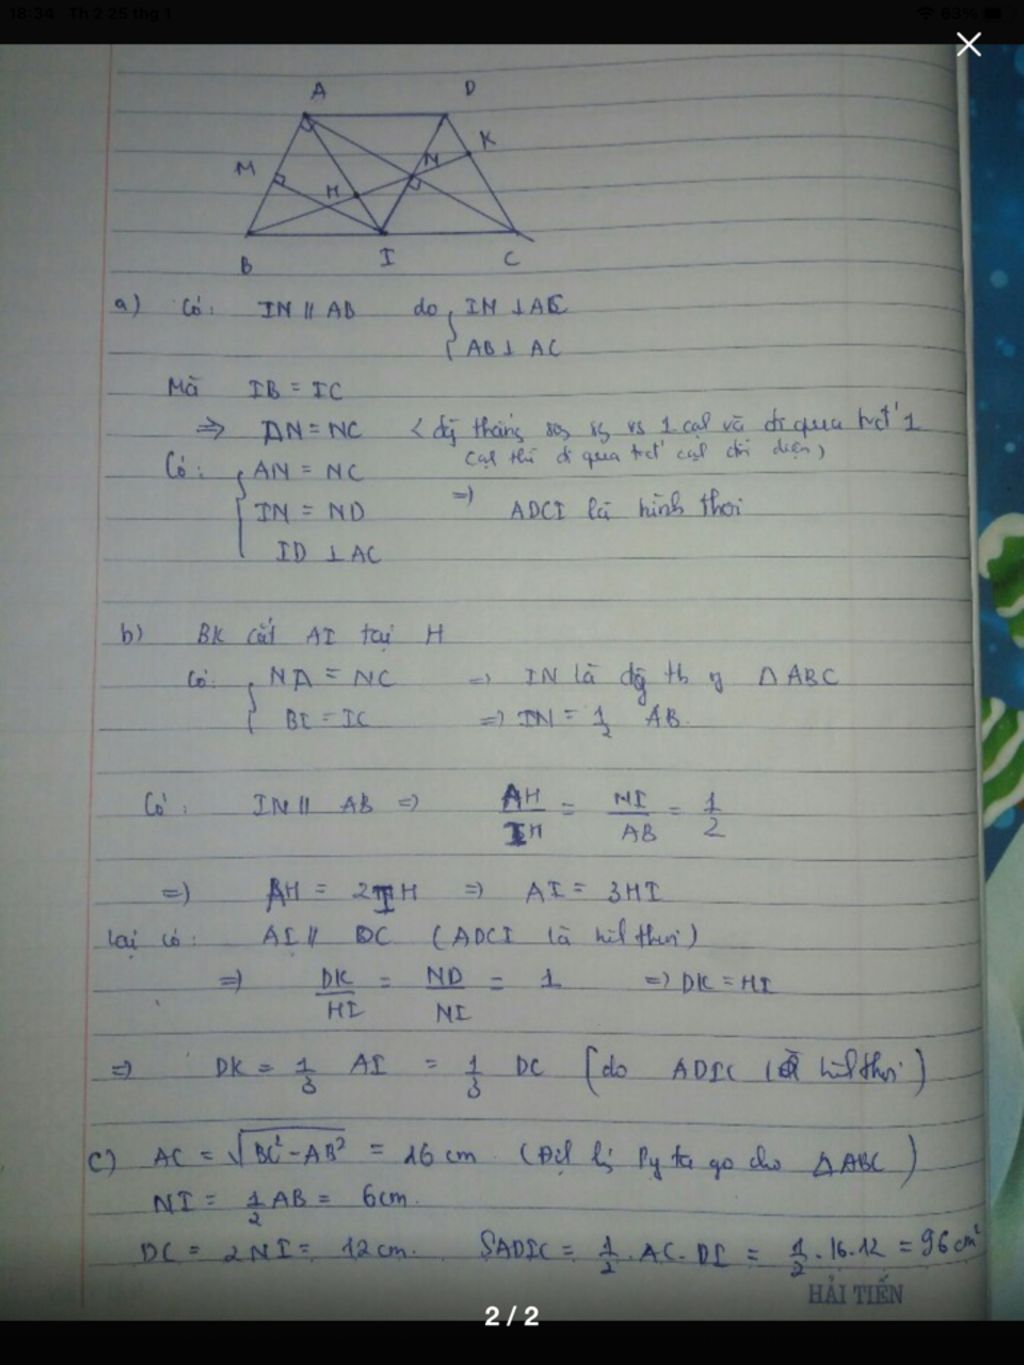 18:34 Th 2 25 thg 1 63%
A D
K
M N
H
B I C
a) Có: IN // AB do { IN ⊥ AC
AB ⊥ AC
Mà IB = IC
=> AN = NC
cạh thì đi qua trđ cạh đối diện)
Có: { AN = NC
IN = ND => ADCI là hình thoi
ID ⊥ AC
b) BK cắt AI tại H
Có: { NA = NC => IN là đg tb ΔABC
BI = IC => IN = 1/2 AB.
Có: IN // AB => AH/IH = NI/AB = 1/2
=> AH = 2IH => AI = 3HI
lại có: AI // DC (ADCI là hìh thoi)
=> DK/HI = ND/NI = 1 => DK = HI
=> DK = 1/3 AI = 1/3 DC (do ADIC là hìh thoi)
c) AC = √BC² - AB² = 16 cm (Địh lý Pytago cho ΔABC)
NI = 1/2 AB = 6cm.
DC = 2NI = 12cm. SADIC = 1/2 . AC . DI = 1/2 . 16 . 12 = 96 cm²
HẢI TIẾN
2 / 2